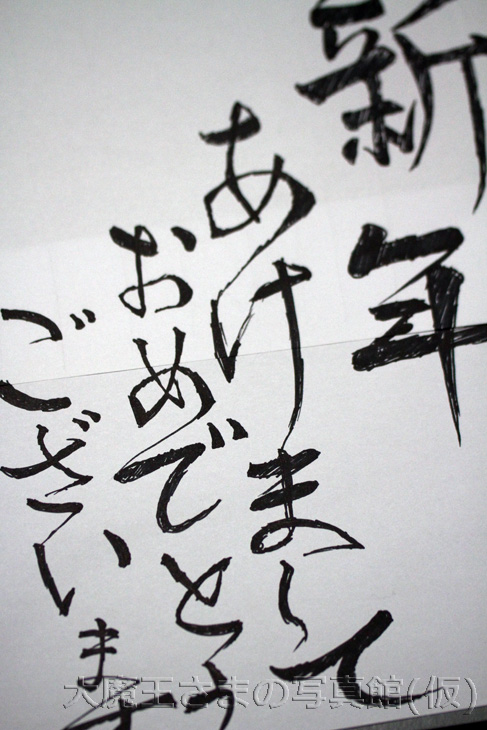 新年
あけまして
おめでとう
ございます
大魔王さまの写真館(仮)